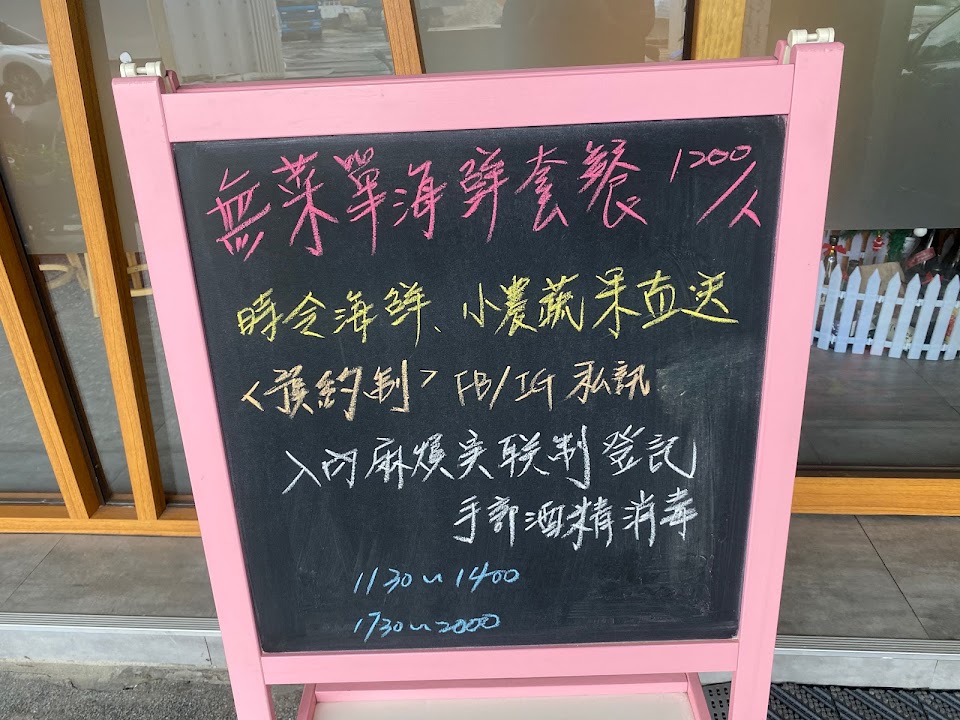 無菜單海鮮套餐 1200/人
時令海鮮、小農蔬果直送
<預約制> FB/IG 私訊
入內麻煩实联制登記
手部酒精消毒
1130~1400
1730~2000